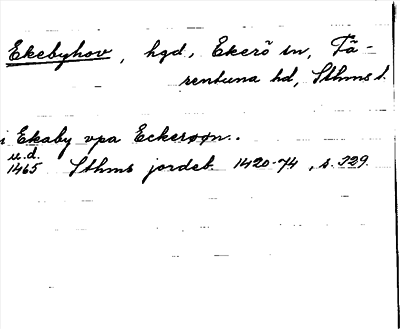 Ekebyhov, hgd, Ekerö sn, Fä-
rentuna hd, Sthms l.
i Ekaby vpa Eckerøøn..
u.d.
1465 Sthms jordeb. 1420-74, s. 329.